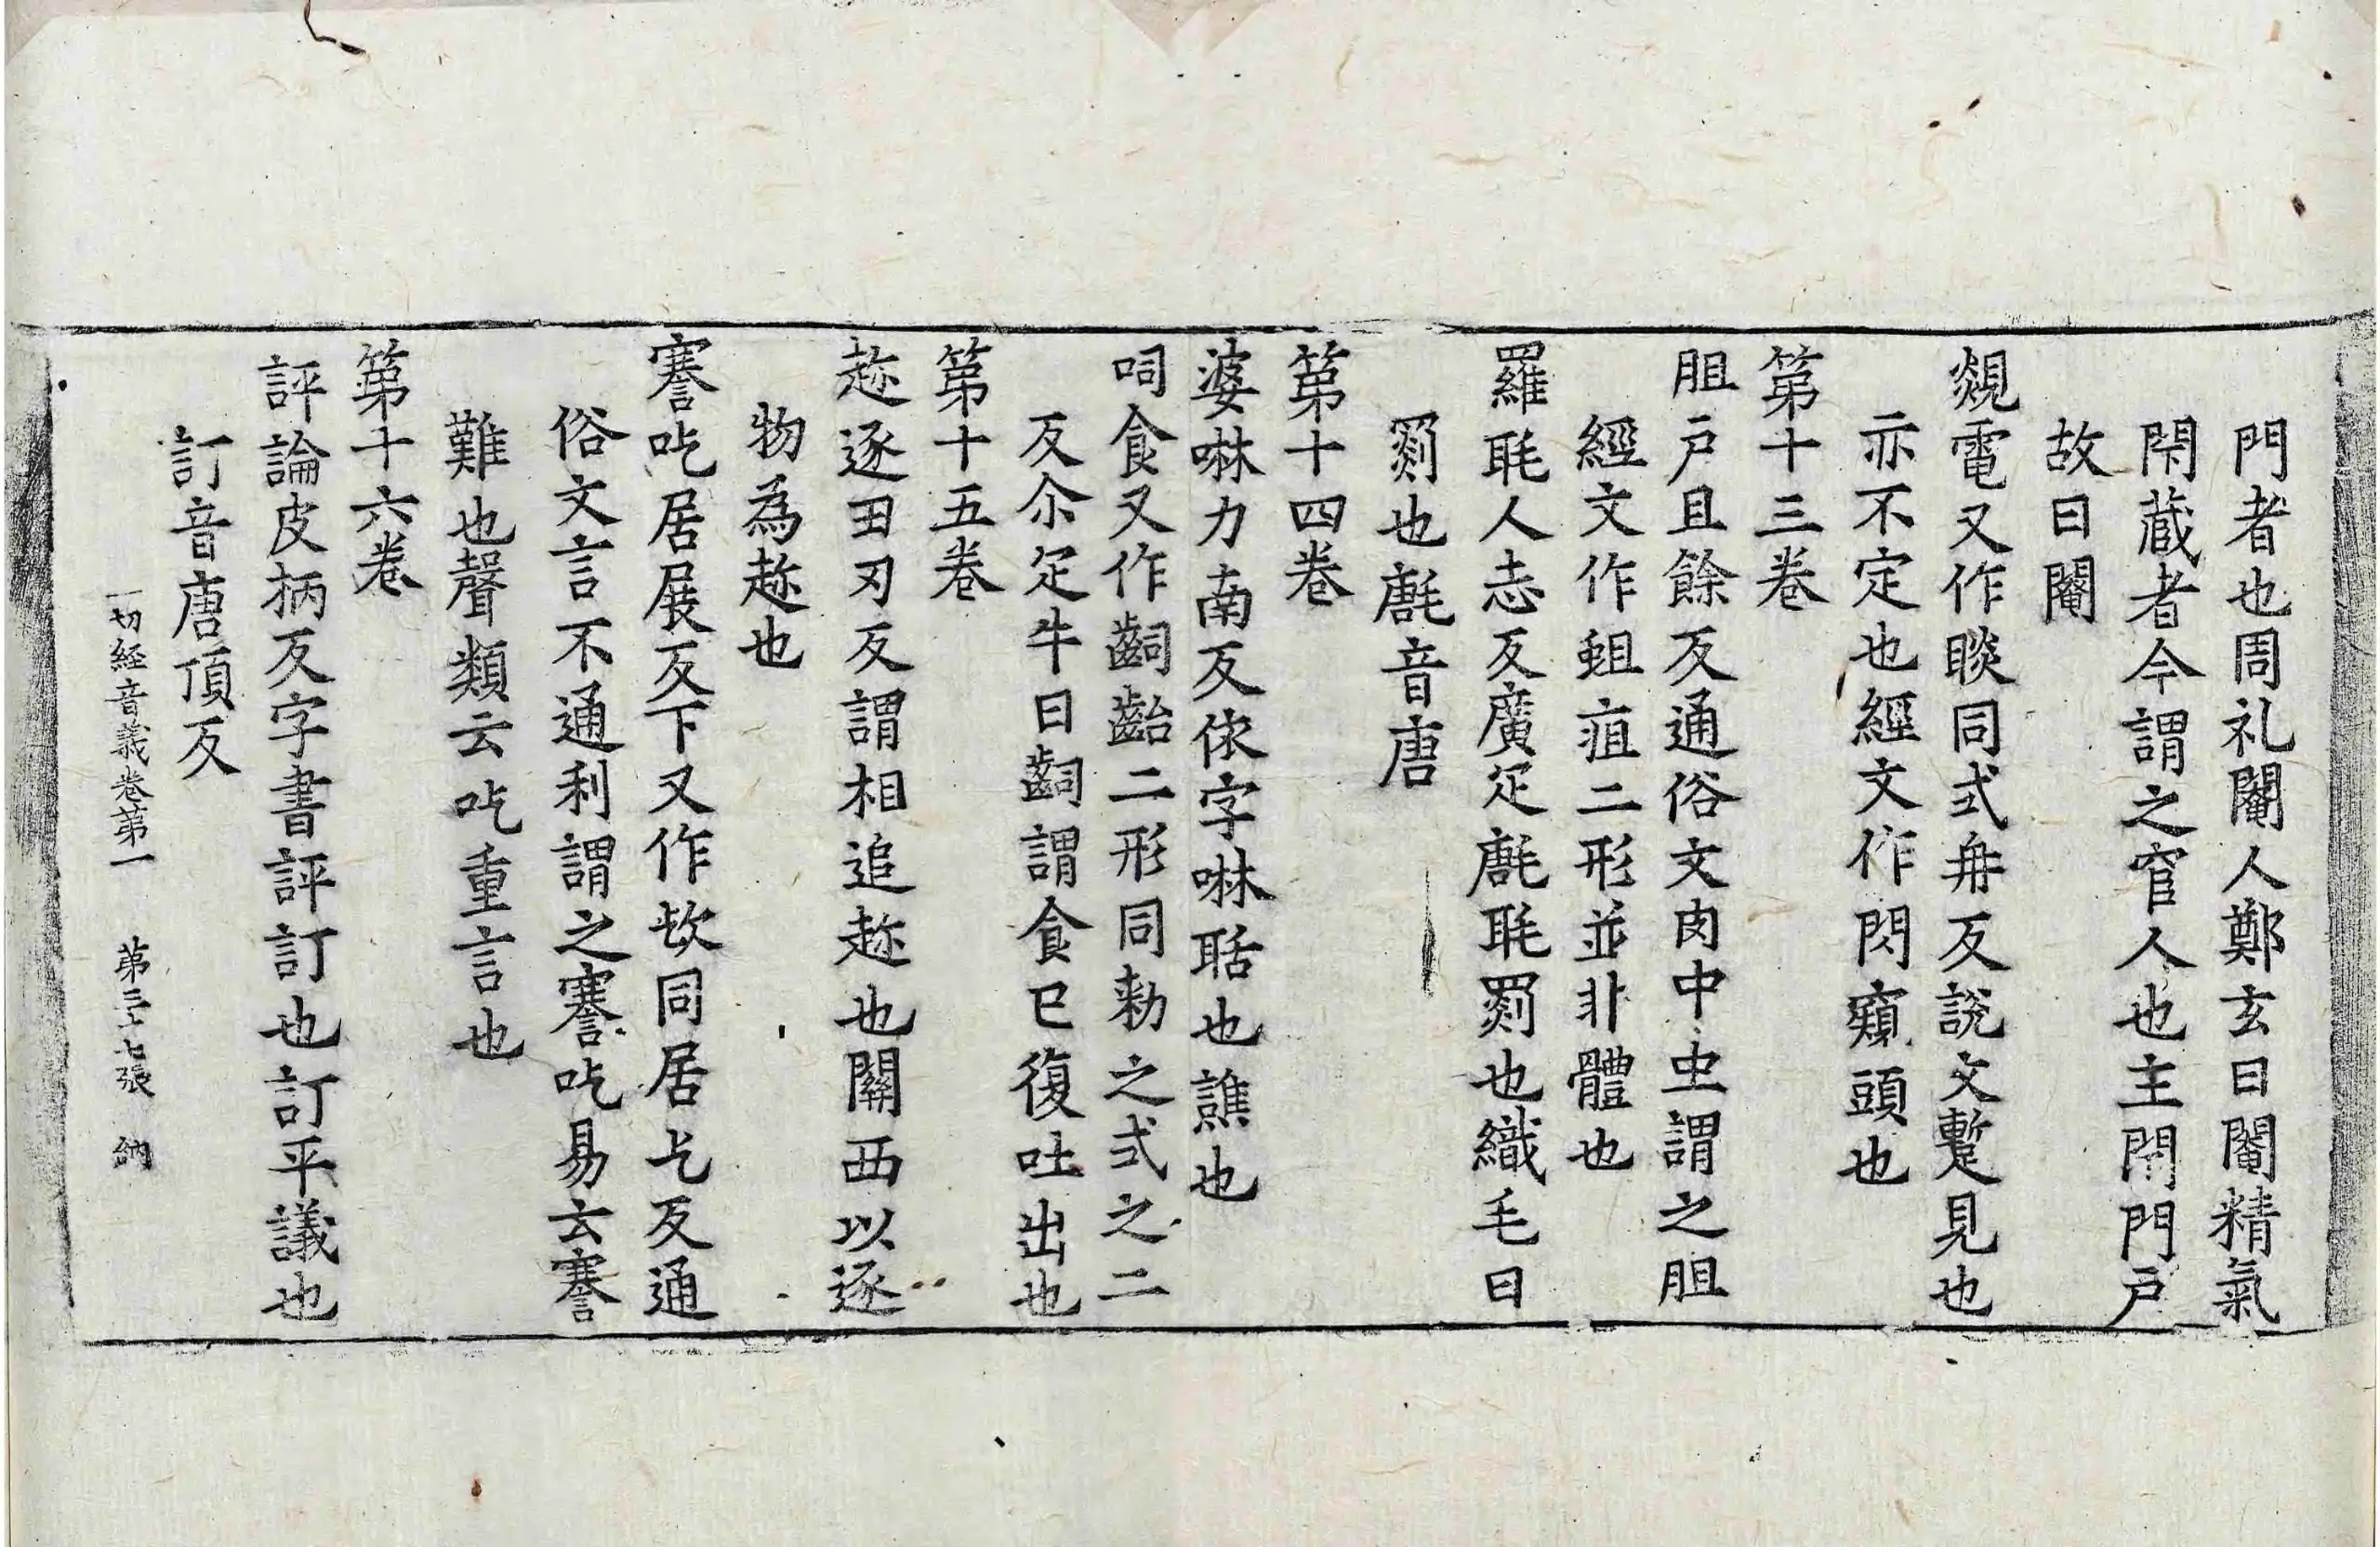 門者也周礼閹人鄭玄曰閹精氣
閇蔵者今謂之窅人也主閇門戶
故曰閹
覢電又作睒同式冉反說文蹔見也
亦不定也經文作閃窺頭也
第十三卷
胆戶且餘反通俗文肉中虫謂之胆
經文作蛆疽二形並非體也
羅毦人志反廣疋㲪毦罽也織毛曰
罽也㲪音唐
第十四卷
婆啉力南反依字啉聒也譙也
呞食又作齝齝二形同勑之式之二
反尒疋牛曰齝謂食已復吐出也
第十五卷
趂逐丑刃反謂相追趂也關西以逐
物為趂也
謇吃居展反下又作㰟同居乞反通
俗文言不通利謂之謇吃易云謇
難也聲類云吃重言也
第十六卷
評論皮柄反字書評訂也訂平議也
訂音唐頂反
一切経音義卷第一 第三十七張 納